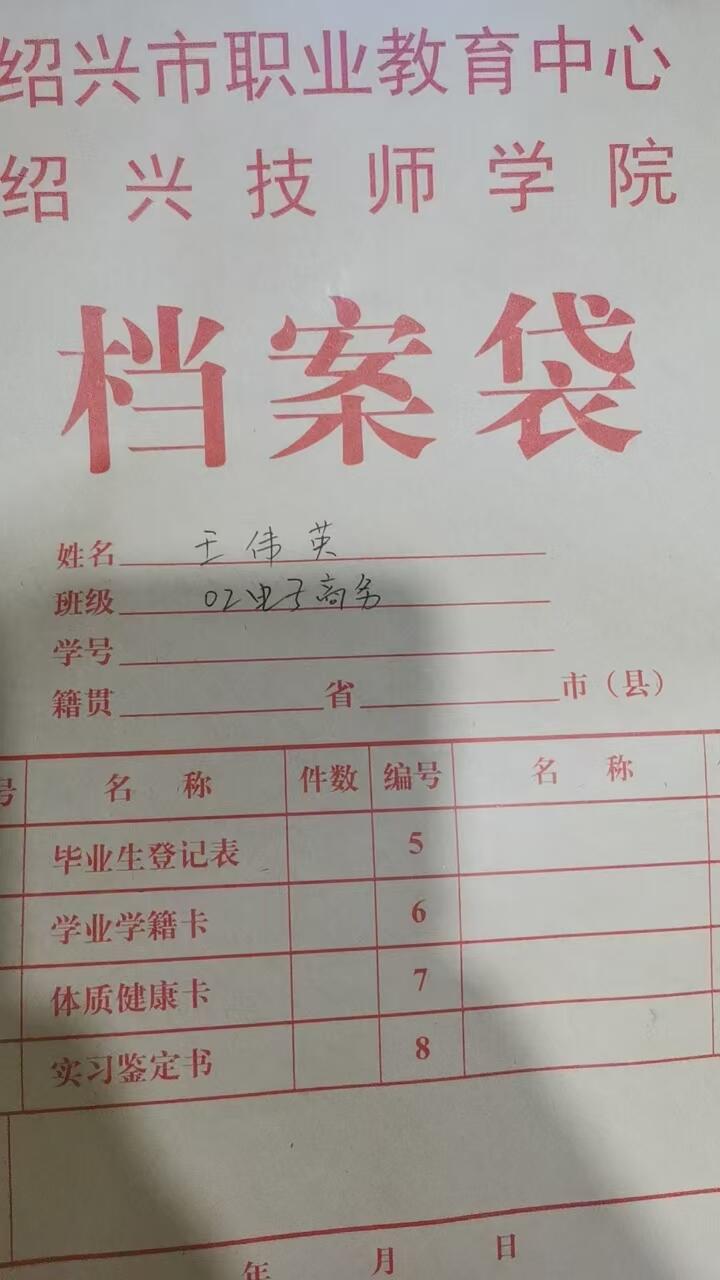 绍兴市职业教育中心
绍兴技师学院
档案袋
姓名 王伟英
班级 02电子商务
学号
籍贯 省 市（县）
号 名称 件数 编号 名称
毕业生登记表 5
学业学籍卡 6
体质健康卡 7
实习鉴定书 8
年 月 日